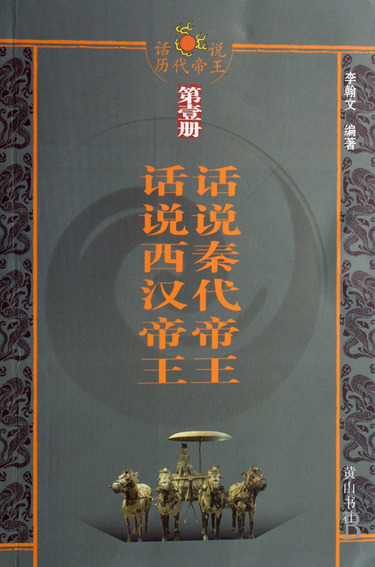 话 说
历代帝王
第壹册
李翰文 编著
话说秦代帝王
话说西汉帝王
黄山书社